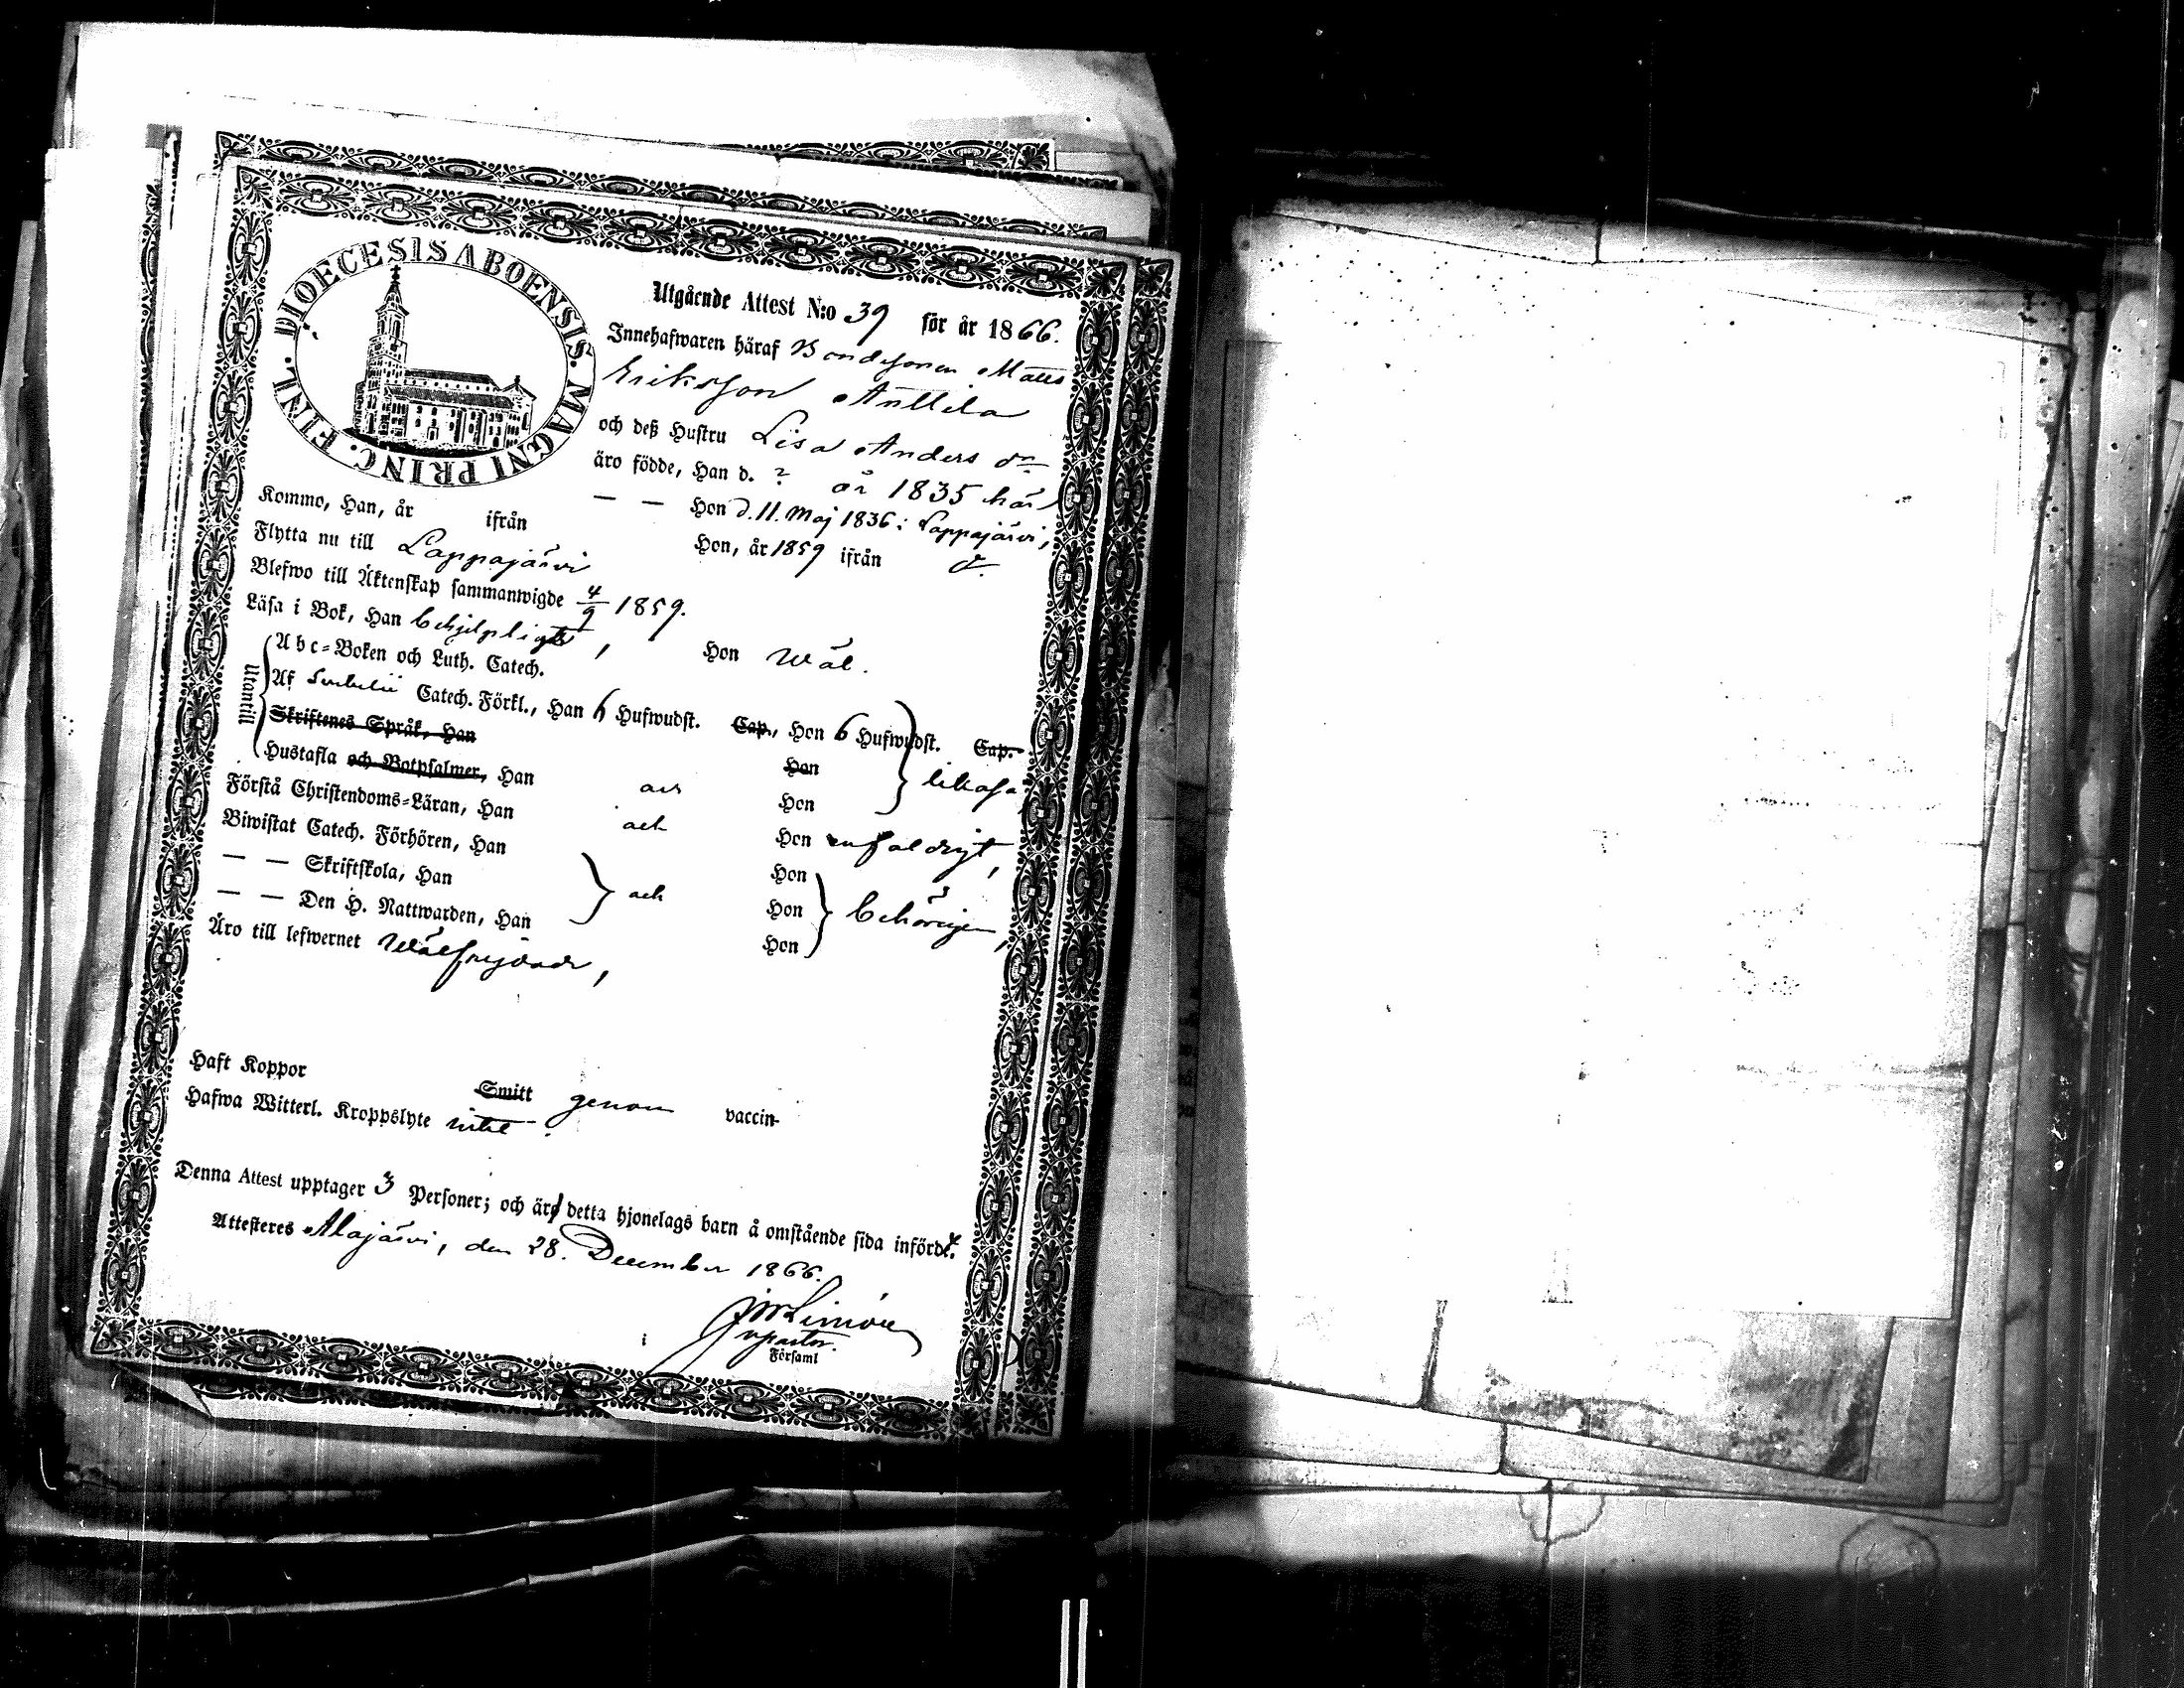 DIOECESIS ABOENSIS. MAGNI PRINC. FINL.
Utgående Attest N:o 39 för år 1866.
Innehafwaren häraf Bondesonen Matts
Eriksson Anttila
och deß Hustru Lisa Anders dr
äro födde, Han d. ? år 1835 här
— — Hon d. 11. Maj 1836 i Lappajärvi,
Kommo, Han, år ifrån Hon, år 1859 ifrån do.
Flytta nu till Lappajärvi
Blefwo till Äktenskap sammanwigde 4/9 1859.
Läsa i Bok, Han behjelpligt, Hon wäl.
Utantill
Abc-Boken och Luth. Catech.
Af Catech. Förkl., Han 6 Hufwudst. Cap., Hon 6 Hufwudst. Cap.
Skriftenes Språk, Han Hon
Hustafla och Botpsalmer, Han Hon likaså
Förstå Christendoms-Läran, Han och Hon enfaldigt,
Biwistat Catech. Förhören, Han Hon
— — Skriftskola, Han och Hon behörigen,
— — Den H. Nattwarden, Han Hon
Äro till lefwernet wälfrejdade,
Haft Koppor Smitt genom vaccin
Hafwa Witterl. Kroppslyte intet.
Denna Attest upptager 3 Personer; och är detta hjonelags barn å omstående sida infördt.
Attesteres Alajärvi, den 28. December 1866.
vpastor.
Församl